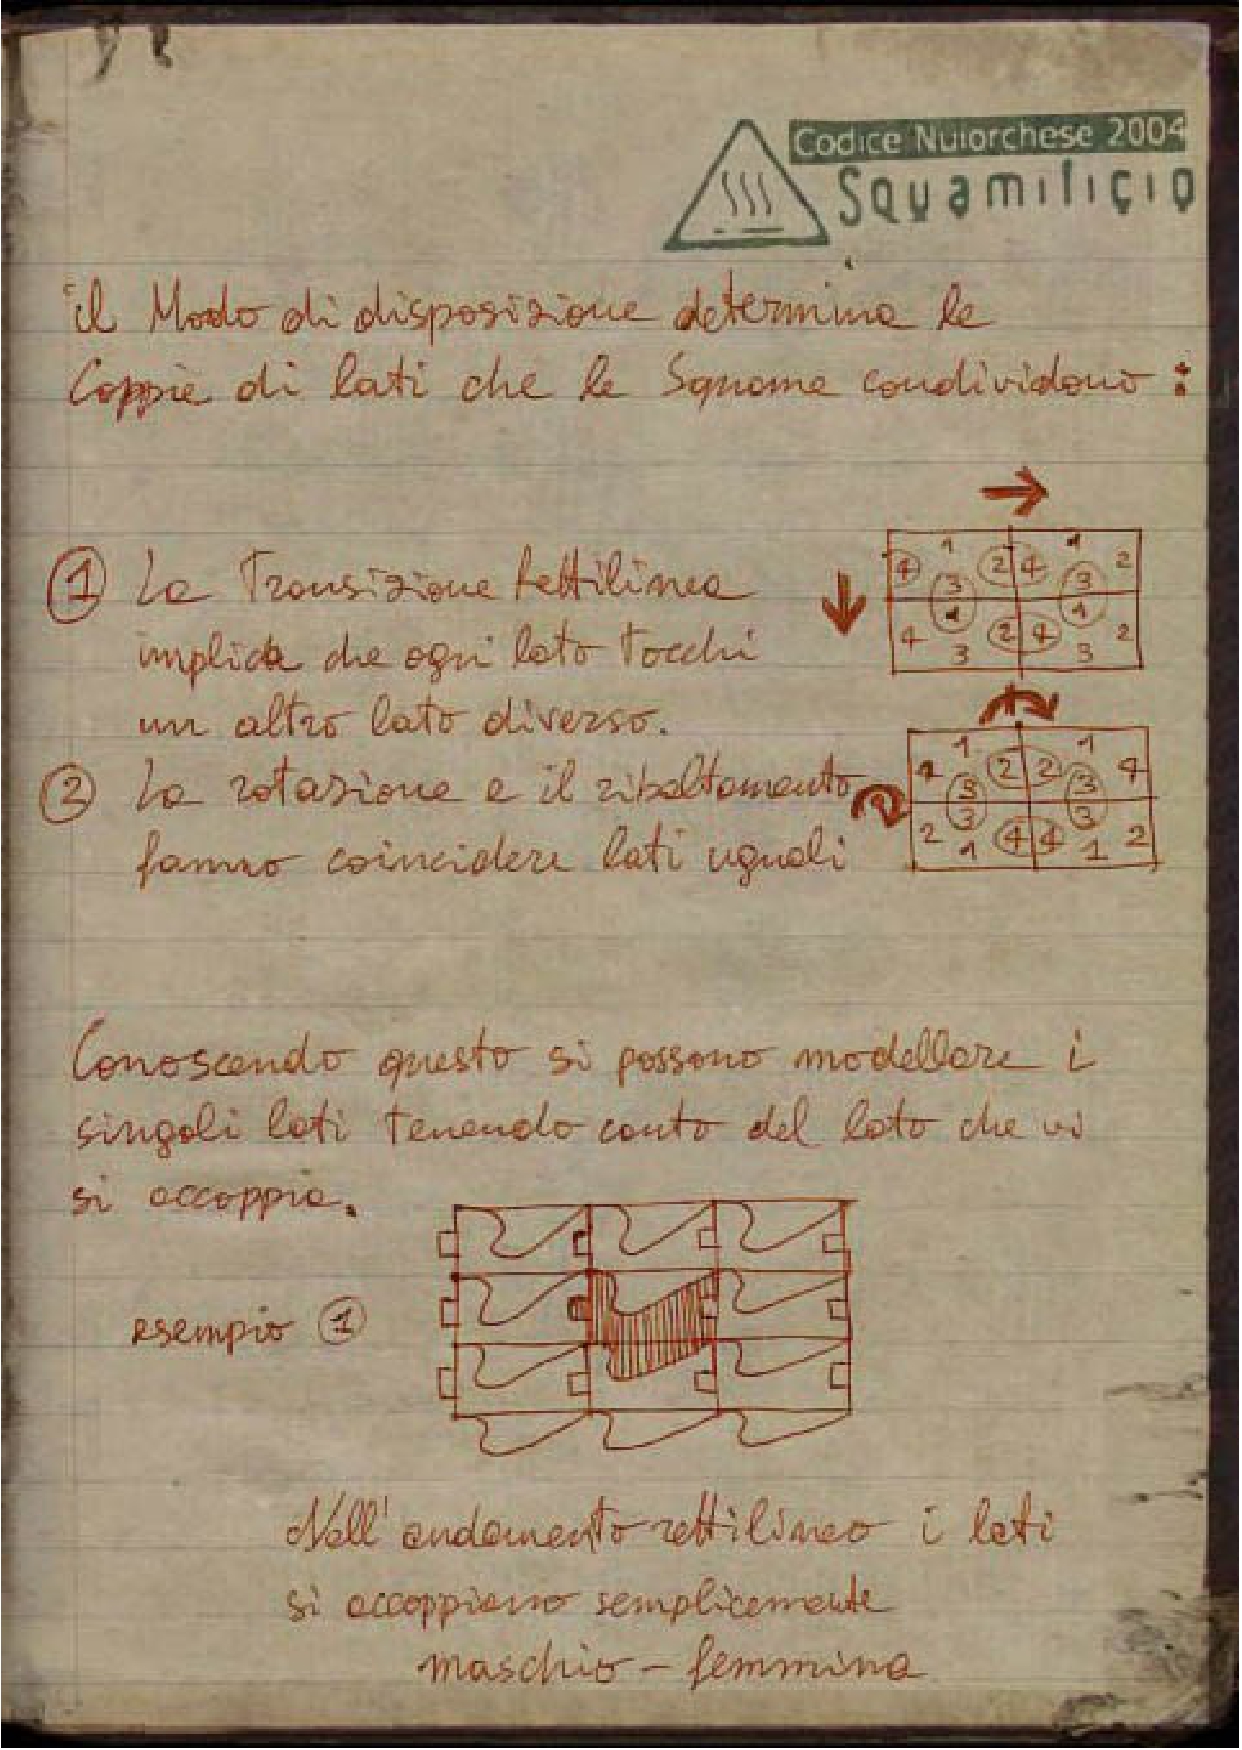 Codice Nuiorchese 2004
Squamificio
il Modo di disposizione determina le
Coppie di lati che le Squame condividono :
1 La Transizione Rettilinea
implica che ogni lato tocchi
un altro lato diverso.
1 1
4 2 4 2
3 3
1 1
4 2 4 2
3 3
2 La rotazione e il ribaltamento
fanno coincidere lati uguali
1 1
4 2 2 4
3 3
3 3
2 4 4 2
1 1
Conoscendo questo si possono modellare i
singoli lati tenendo conto del lato che vi
si accoppia.
esempio 1
Nell'andamento rettilineo i lati
si accoppiano semplicemente
maschio - femmina